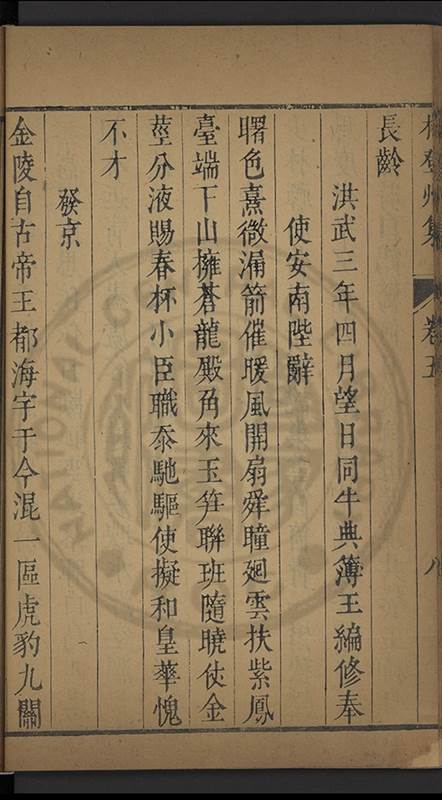 林登州集 卷五 八
長齡
洪武三年四月望日同牛典簿王編修奉
使安南陛辭
曙色熹微漏箭催暖風開扇舜瞳廻雲扶紫鳳
臺端下山擁蒼龍殿角來玉笋聯班隨曉仗金
莖分液賜春杯小臣職忝馳驅使擬和皇華愧
不才
發京
金陵自古帝王都海宇于今混一區虎豹九關